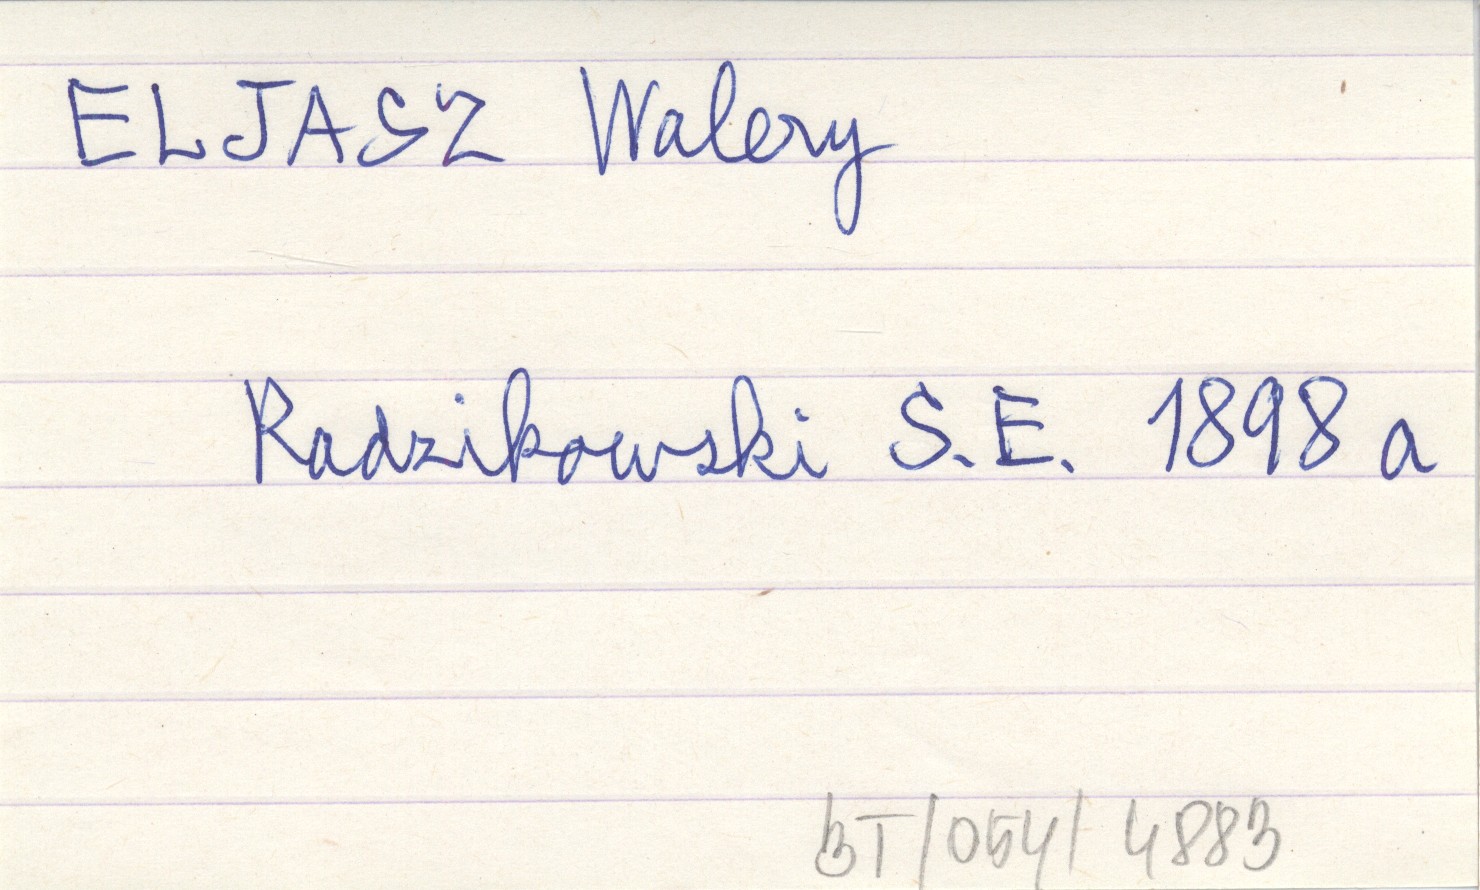 ELJASZ Walery
Radzikowski S.E. 1898 a
BT/054/4883